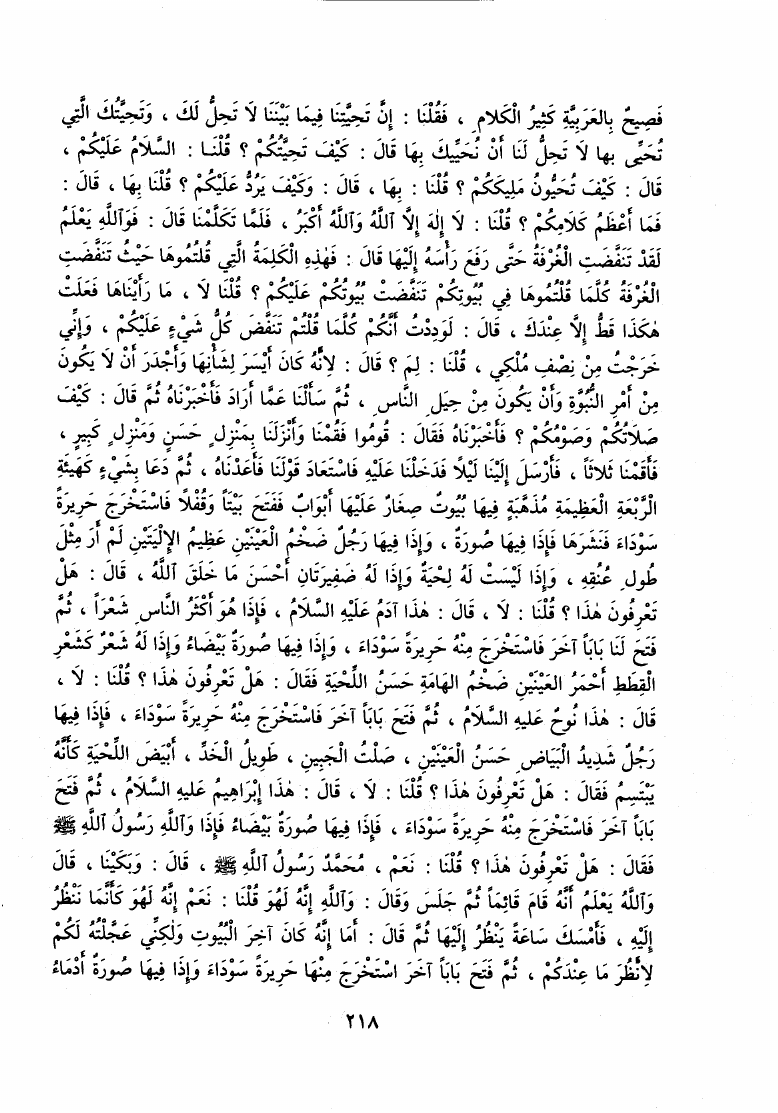 فَصِيحٌ بِالعَرَبِيَّةِ كَثِيرُ الْكَلَامِ ، فَقُلْنَا : إِنَّ تَحِيَّتَنَا فِيمَا بَيْنَنَا لَا تَحِلُّ لَكَ ، وَتَحِيَّتُكَ الَّتِي
تُحَيَّى بها لَا تَحِلُّ لَنَا أَنْ نُحَيِّيكَ بِهَا قَالَ : كَيْفَ تَحِيَّتُكُمْ ؟ قُلْنَا : السَّلَامُ عَلَيْكُمْ ،
قَالَ : كَيْفَ تُحَيُّونَ مَلِيكَكُمْ ؟ قُلْنَا : بِهَا ، قَالَ : وَكَيْفَ يَرُدُّ عَلَيْكُمْ ؟ قُلْنَا بِهَا ، قَالَ :
فَمَا أَعْظَمُ كَلَامِكُمْ ؟ قُلْنَا : لَا إِلٰهَ إِلَّا اللَّهُ وَاللَّهُ أَكْبَرُ ، فَلَمَّا تَكَلَّمْنَا قَالَ : فَوَاللَّهِ يَعْلَمُ
لَقَدْ تَنَفَّضَتِ الْغُرْفَةُ حَتَّى رَفَعَ رَأْسَهُ إِلَيْهَا قَالَ : فَهٰذِهِ الْكَلِمَةُ الَّتِي قُلْتُمُوهَا حَيْثُ تَنَفَّضَتِ
الْغُرْفَةُ كُلَّمَا قُلْتُمُوهَا فِي بُيُوتِكُمْ تَنَفَّضَتْ بُيُوتُكُمْ عَلَيْكُمْ ؟ قُلْنَا لَا ، مَا رَأَيْنَاهَا فَعَلَتْ
هٰكَذَا قَطُّ إِلَّا عِنْدَكَ ، قَالَ : لَوَدِدْتُ أَنَّكُمْ كُلَّمَا قُلْتُمْ تَنَفَّضَ كُلُّ شَيْءٍ عَلَيْكُمْ ، وَإِنِّي
خَرَجْتُ مِنْ نِصْفِ مُلْكِي ، قُلْنَا : لِمَ ؟ قَالَ : لِأَنَّهُ كَانَ أَيْسَرَ لِشَأْنِهَا وَأَجْدَرَ أَنْ لَا يَكُونَ
مِنْ أَمْرِ النُّبُوَّةِ وَأَنْ يَكُونَ مِنْ حِيَلِ النَّاسِ ، ثُمَّ سَأَلْنَا عَمَّا أَرَادَ فَأَخْبَرْنَاهُ ثُمَّ قَالَ : كَيْفَ
صَلَاتُكُمْ وَصَوْمُكُمْ ؟ فَأَخْبَرْنَاهُ فَقَالَ : قُومُوا فَقُمْنَا وَأَنْزَلَنَا بِمَنْزِلٍ حَسَنٍ وَمَنْزِلٍ كَبِيرٍ ،
فَأَقَمْنَا ثَلَاثاً ، فَأَرْسَلَ إِلَيْنَا لَيْلاً فَدَخَلْنَا عَلَيْهِ فَاسْتَعَادَ قَوْلَنَا فَأَعَدْنَاهُ ، ثُمَّ دَعَا بِشَيْءٍ كَهَيْئَةِ
الْرَّبْعَةِ الْعَظِيمَةِ مُذَهَّبَةٍ فِيهَا بُيُوتٌ صِغَارٌ عَلَيْهَا أَبْوَابٌ فَفَتَحَ بَيْتاً وَقُفْلاً فَاسْتَخْرَجَ حَرِيرَةً
سَوْدَاءَ فَنَشَرَهَا فَإِذَا فِيهَا صُورَةٌ ، وَإِذَا فِيهَا رَجُلٌ ضَخْمُ الْعَيْنَيْنِ عَظِيمُ الإِلْيَتَيْنِ لَمْ أَرَ مِثْلَ
طُولِ عُنُقِهِ ، وَإِذَا لَيْسَتْ لَهُ لِحْيَةٌ وَإِذَا لَهُ ضَفِيرَتَانِ أَحْسَنَ مَا خَلَقَ اللَّهُ ، قَالَ : هَلْ
تَعْرِفُونَ هٰذَا ؟ قُلْنَا : لَا ، قَالَ : هٰذَا آدَمُ عَلَيْهِ السَّلَامُ ، فَإِذَا هُوَ أَكْثَرُ النَّاسِ شَعْراً ، ثُمَّ
فَتَحَ لَنَا بَاباً آخَرَ فَاسْتَخْرَجَ مِنْهُ حَرِيرَةً سَوْدَاءَ ، وَإِذَا فِيهَا صُورَةٌ بَيْضَاءُ وَإِذَا لَهُ شَعْرٌ كَشَعْرِ
الْقِطَطِ أَحْمَرُ العَيْنَيْنِ ضَخْمُ الهَامَةِ حَسَنُ اللِّحْيَةِ فَقَالَ : هَلْ تَعْرِفُونَ هٰذَا ؟ قُلْنَا : لَا ،
قَالَ : هٰذَا نُوحٌ عَليهِ السَّلَامُ ، ثُمَّ فَتَحَ بَاباً آخَرَ فَاسْتَخْرَجَ مِنْهُ حَرِيرَةً سَوْدَاءَ ، فَإِذَا فِيهَا
رَجُلٌ شَدِيدُ الْبَيَاضِ حَسَنُ الْعَيْنَيْنِ ، صَلْتُ الْجَبِينِ ، طَوِيلُ الْخَدِّ ، أَبْيَضَ اللِّحْيَةِ كَأَنَّهُ
يَبْتَسِمُ فَقَالَ : هَلْ تَعْرِفُونَ هٰذَا ؟ قُلْنَا : لَا ، قَالَ : هٰذَا إِبْرَاهِيمُ عَليهِ السَّلَامُ ، ثُمَّ فَتَحَ
بَاباً آخَرَ فَاسْتَخْرَجَ مِنْهُ حَرِيرَةً سَوْدَاءَ ، فَإِذَا فِيهَا صُورَةٌ بَيْضَاءُ فَإِذَا وَاللَّهِ رَسُولُ اللَّهِ ﷺ
فَقَالَ : هَلْ تَعْرِفُونَ هٰذَا ؟ قُلْنَا : نَعَمْ ، مُحَمَّدٌ رَسُولُ اللَّهِ ﷺ ، قَالَ : وَبَكَيْنَا ، قَالَ
وَاللَّهُ يَعْلَمُ أَنَّهُ قَامَ قَائِمَاً ثُمَّ جَلَسَ وَقَالَ : وَاللَّهِ إِنَّهُ لَهُوَ قُلْنَا : نَعَمْ إِنَّهُ لَهُوَ كَأَنَّمَا نَنْظُرُ
إِلَيْهِ ، فَأَمْسَكَ سَاعَةً يَنْظُرُ إِلَيْهَا ثُمَّ قَالَ : أَمَا إِنَّهُ كَانَ آخِرَ الْبُيُوتِ وَلٰكِنِّي عَجَّلْتُهُ لَكُمْ
لِأَنْظُرَ مَا عِنْدَكُمْ ، ثُمَّ فَتَحَ بَاباً آخَرَ اسْتَخْرَجَ مِنْهَا حَرِيرَةً سَوْدَاءَ وَإِذَا فِيهَا صُورَةٌ أَدْمَاءُ
٢١٨